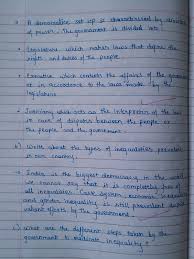 a A democratic set up is characterised by
of power. The government is divided into:
• Legislature which makes laws that define the
rights and duties of the people.
• Executive which controls the affairs of the
in accordance to the laws made by the
legislature
• Judiciary which acts as the interpreter of the law
in case of disputes between the people or
the people and the government.
b) Write about the types of inequalities prevalent
in our country.
• India is the biggest democracy in the world
we cannot say that it is completely free of
all inequalities. Caste system, economic
and gender inequality is still prevalent despite
valiant efforts by the government.
c) What are the different steps taken by the
government to eradicate inequality?